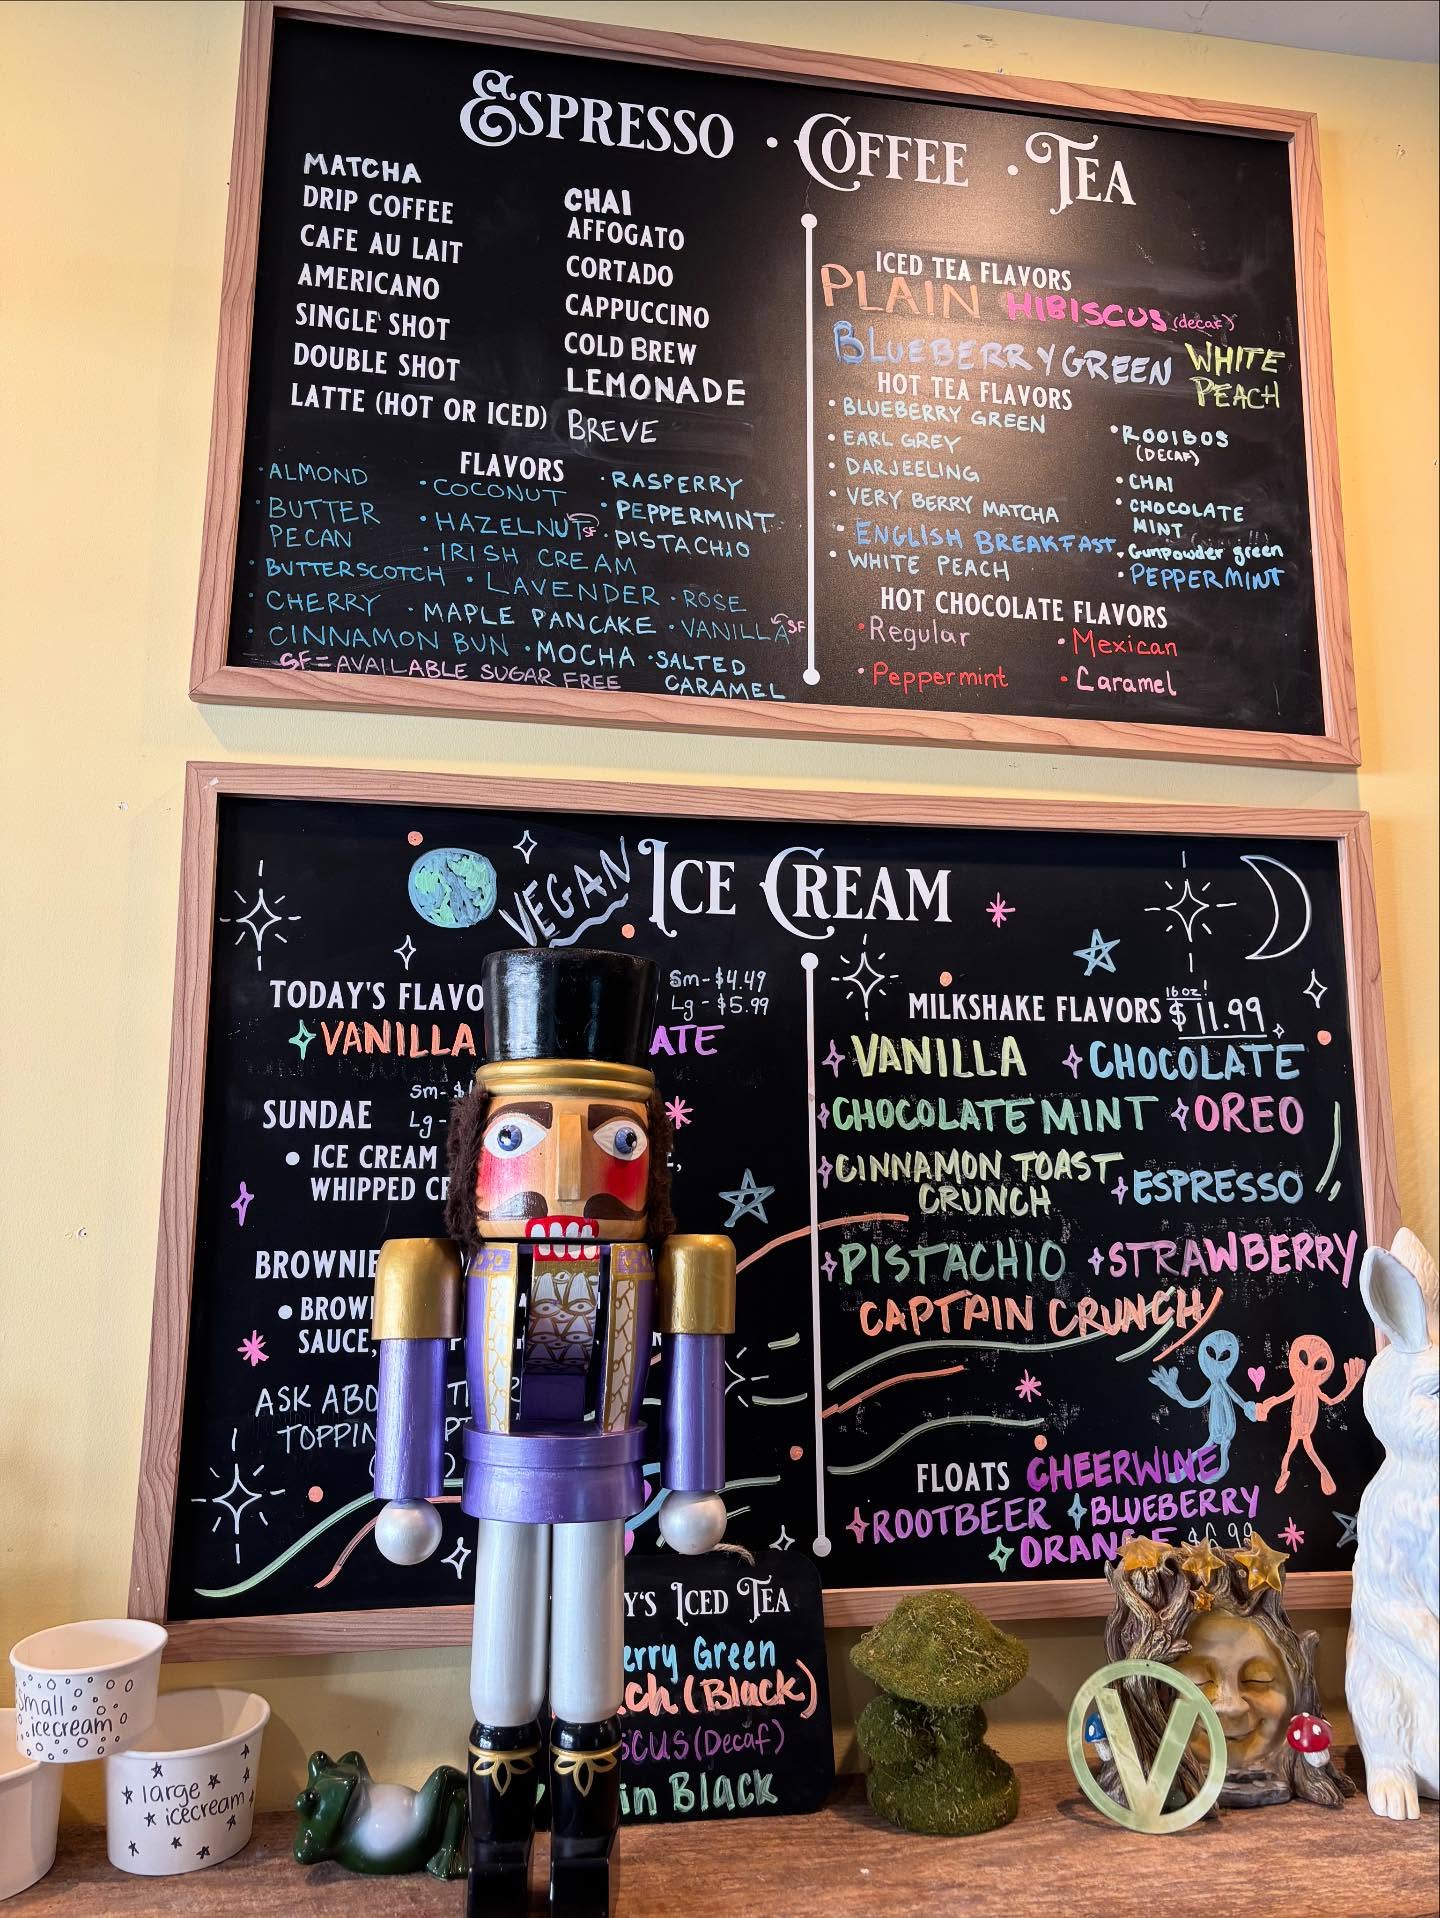 ESPRESSO · COFFEE · TEA
MATCHA
DRIP COFFEE
CAFE AU LAIT
AMERICANO
SINGLE SHOT
DOUBLE SHOT
LATTE (HOT OR ICED)
CHAI
AFFOGATO
CORTADO
CAPPUCCINO
COLD BREW
LEMONADE
BREVE
FLAVORS
· ALMOND
· BUTTER
PECAN
· BUTTERSCOTCH
· CHERRY
· CINNAMON BUN
· COCONUT
· HAZELNUT SF
· IRISH CREAM
· LAVENDER
· MAPLE PANCAKE
· MOCHA
· RASPERRY
· PEPPERMINT
· PISTACHIO
· ROSE
· VANILLA SF
· SALTED
CARAMEL
SF = AVAILABLE SUGAR FREE
ICED TEA FLAVORS
PLAIN HIBISCUS (decaf)
BLUEBERRY GREEN WHITE
PEACH
HOT TEA FLAVORS
· BLUEBERRY GREEN
· EARL GREY
· DARJEELING
· VERY BERRY MATCHA
· ENGLISH BREAKFAST
· WHITE PEACH
· ROOIBOS
(DECAF)
· CHAI
· CHOCOLATE
MINT
· Gunpowder green
· PEPPERMINT
HOT CHOCOLATE FLAVORS
· Regular · Mexican
· Peppermint · Caramel
VEGAN ICE CREAM
TODAY'S FLAVO
Sm - $4.49
Lg - $5.99
VANILLA ATE
SUNDAE
Sm - $
Lg -
• ICE CREAM
WHIPPED CR
BROWNIE
• BROW
SAUCE,
ASK ABO
TOPPIN
MILKSHAKE FLAVORS 16 oz! $11.99
VANILLA CHOCOLATE
CHOCOLATE MINT OREO
CINNAMON TOAST
CRUNCH
ESPRESSO
PISTACHIO STRAWBERRY
CAPTAIN CRUNCH
FLOATS CHEERWINE
ROOTBEER BLUEBERRY
ORANGE $6.99
Y'S ICED TEA
erry Green
ch (Black)
SCUS (Decaf)
in Black
small
icecream
large
icecream
V